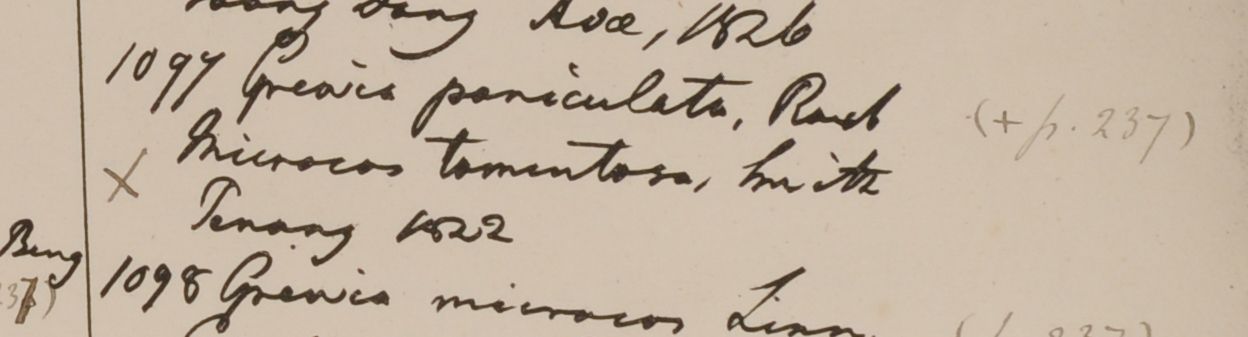 Ava, 1826
1097 Grewia paniculata, Roxb (+ p. 237)
Microcos tomentosa, Smith
X
Penang 1822
Beng
1098 Grewia microcos Linn.
237)